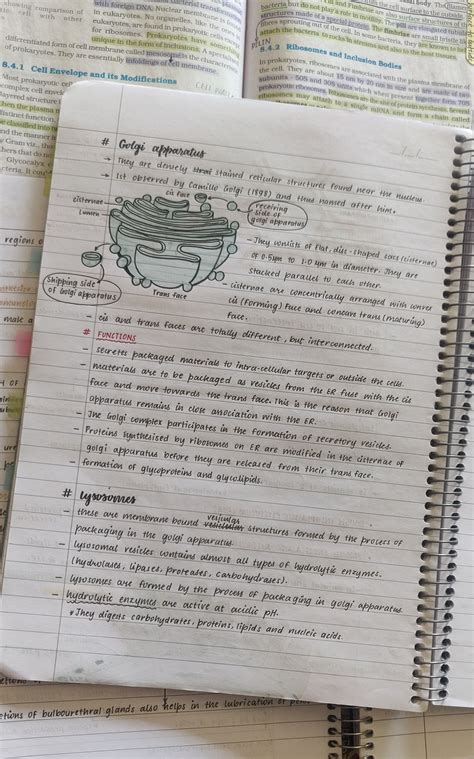 with foreign DNA. Nuclear membrane is
8.4.1 Cell Envelope and its Modifications
8.4.2 Ribosomes and Inclusion Bodies
In prokaryotes, ribosomes are associated with the plasma membrane of
# Golgi apparatus
→ They are densely stained reticular structures found near the nucleus.
→ 1st observed by Camillo Golgi (1898) and thus named after him.
cis face
cisternae
Lumen
receiving
side of
golgi apparatus
Shipping side
of Golgi apparatus
Trans face
- They consists of flat, disc-shaped sacs (cisternae)
of 0.5µm to 1.0µm in diameter. They are
stacked parallel to each other.
- cisternae are concentrically arranged with convex
cis (forming) face and concave trans (maturing)
face.
- cis and trans faces are totally different, but interconnected.
# FUNCTIONS
- secretes packaged materials to intra-cellular targets or outside the cells.
- materials are to be packaged as vesicles from the ER fuse with the cis
face and move towards the trans face. This is the reason that Golgi
apparatus remains in close association with the ER.
- The Golgi complex participates in the formation of secretory vesicles.
- Proteins synthesised by ribosomes on ER are modified in the cisternae of
golgi apparatus before they are released from their trans face.
- formation of glycoproteins and glycolipids.
# Lysosomes
- these are membrane bound vesicular structures formed by the process of
packaging in the golgi apparatus.
- lysosomal vesicles contains almost all types of hydrolytic enzymes.
(hydrolases, lipases, proteases, carbohydrases).
- lysosomes are formed by the process of packaging in golgi apparatus.
- hydrolytic enzymes are active at acidic pH.
* They digens carbohydrates, proteins, lipids and nucleic acids.
etions of bulbourethral glands also helps in the lubrication of